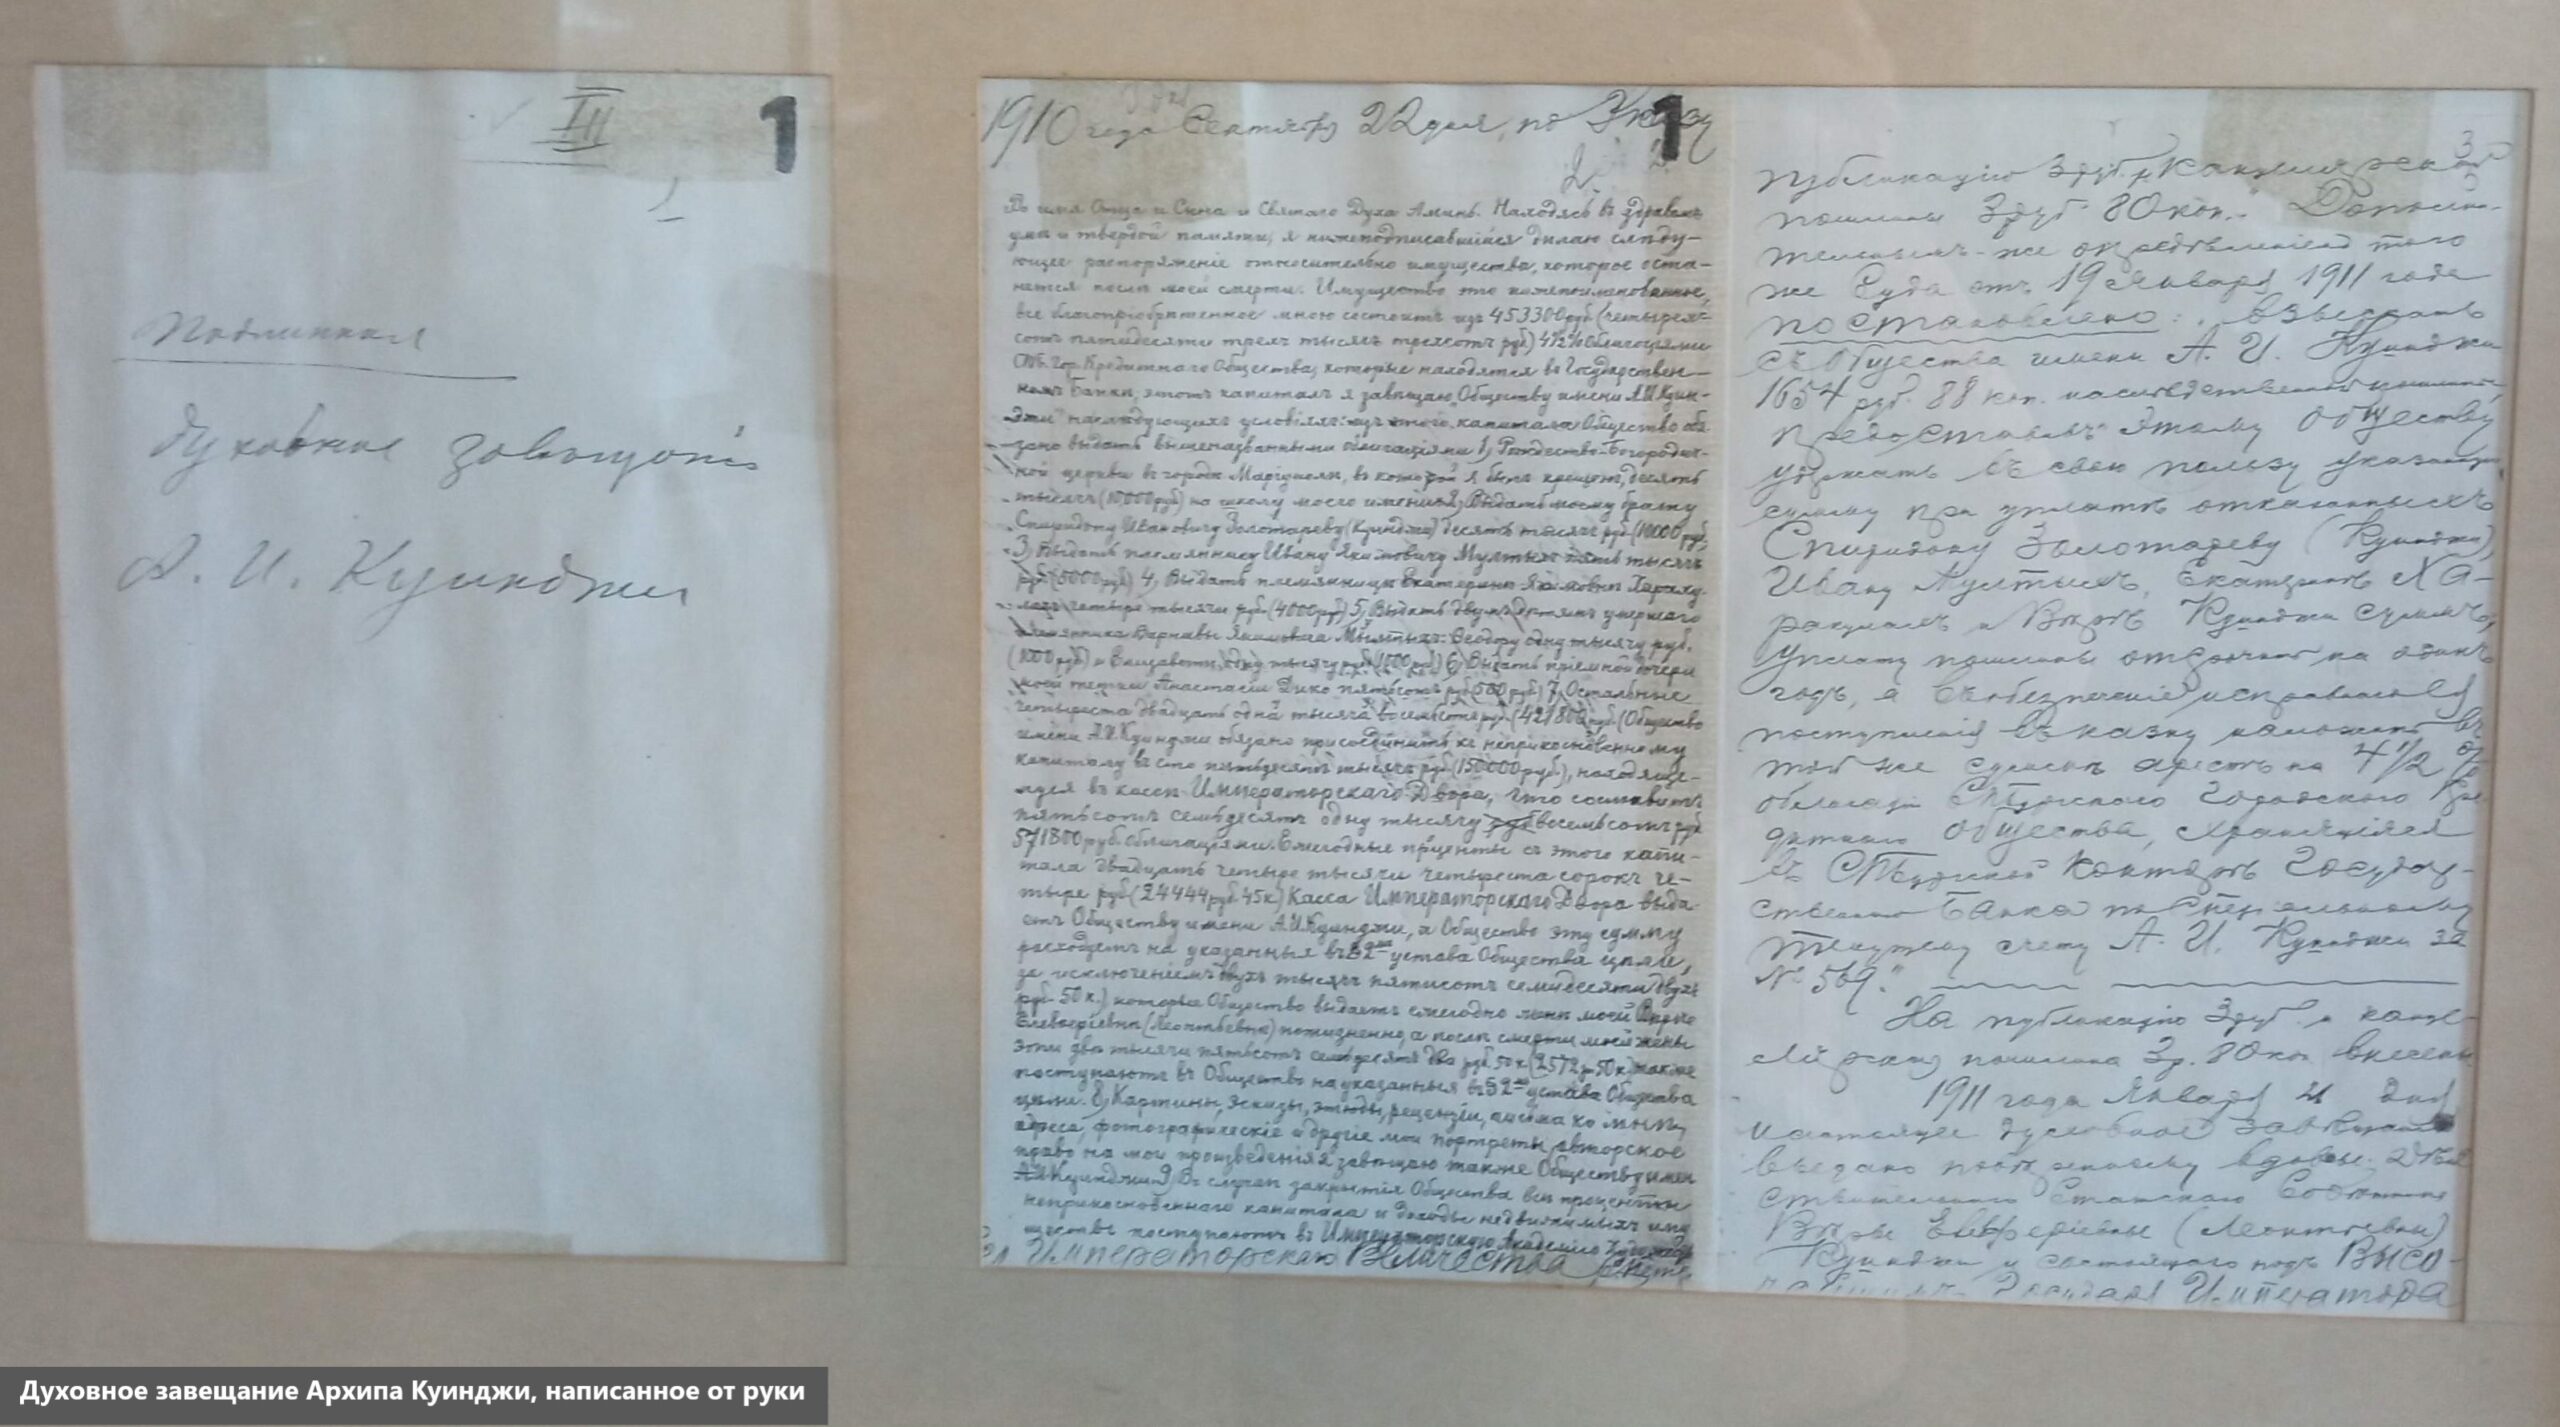 III
1
Подлинное
духовное завещание
А. И. Куинджи
1
1910 года Сентября 22 дня, по Указу
Въ имя Отца и Сына и Святаго Духа Аминь. Находясь въ здравомъ
умѣ и твердой памяти, я нижеподписавшійся дѣлаю слѣду-
ющее распоряженіе относительно имущества, которое оста-
нется послѣ моей смерти. Имущество это
все благопріобрѣтенное мною состоитъ изъ 453300 руб. (четыреста
пятидесяти трехъ тысячъ трехсотъ руб.) 4½% облигаціями
СПБ. Гор. Кредитнаго Общества, которые находятся въ Государствен-
номъ Банкѣ, этотъ капиталъ я завѣщаю „Обществу имени А.И. Куин-
джи" на слѣдующихъ условіяхъ: изъ этого капитала Общество обя-
зано выдать вышеназванными облигаціями 1) Рождество-Богородич-
ной церкви въ городѣ Маріуполѣ, въ которой я былъ крещенъ, десять
тысячъ (10000 руб) на школу моего имени 2) Выдать моему брату
Спиридону Ивановичу Золотареву (Куинджи) десять тысячъ руб (10000 руб)
3) Выдать племяннику Ивану Якимовичу пять тысячъ
руб. (5000 руб) 4) Выдать племянницѣ Екатеринѣ Якимовнѣ Хараху-
четыре тысячи руб. (4000 руб) 5) Выдать двумъ дѣтямъ умершаго
племянника Варнавы Якимовича Ѳеодору одну тысячу руб.
(1000 руб) и Елизаветѣ одну тысячу руб (1000 руб) 6) Выдать пріемной дочери
моей тетки Анастасіи пятьсотъ руб (500 руб) 7) Остальные
четыреста двадцать одна тысяча восемьсотъ руб. (421800 руб. (Общество
имени А.И. Куинджи обязано присоединить къ неприкосновенному
капиталу въ сто пятьдесятъ тысячъ руб (150000 руб.), находяще-
муся въ кассѣ Императорскаго Двора, что составитъ
пятьсотъ семьдесятъ одну тысячу восемьсотъ руб
571800 руб. облигаціями. Ежегодные проценты съ этого капи-
тала двадцать четыре тысячи четыреста сорокъ че-
тыре руб (24444 руб. 45 к) Касса Императорскаго Двора выда-
етъ Обществу имени А.И. Куинджи, а Общество эту сумму
расходуетъ на указанныя въ § 2 устава Общества цѣли,
за исключеніемъ двухъ тысячъ пятисотъ семидесяти двухъ
руб. 50 к.) которые Общество выдаетъ ежегодно женѣ моей Вѣрѣ
Елевферіевнѣ (Леонтьевнѣ) пожизненно, а послѣ смерти моей жены
эти двѣ тысячи пятьсотъ семьдесятъ два руб. 50 к (2572 р 50 к) также
поступаютъ въ Общество на указанныя въ § 2 устава Общества
цѣли. 8) Картины, эскизы, этюды, рецензіи, письма ко мнѣ,
адреса, фотографическіе и другіе мои портреты, авторское
право на мои произведенія завѣщаю также Обществу имени
А.И. Куинджи 9) Въ случаѣ закрытія Общества всѣ проценты
неприкосновеннаго капитала и доходы недвижимыхъ иму-
ществъ поступаютъ въ Императорскую Академію Художествъ
Императорскаго Величества
3
публикацію 3 руб. и Канцелярской
пошлины 3 руб 80 коп." Дополни-
тельнымъ-же опредѣленіемъ того
же Суда отъ 19 Января 1911 года
постановлено: „взыскать
съ Общества имени А. И. Куинджи
1654 руб. 88 коп. наслѣдственной пошлины,
предоставивъ этому обществу
удержать въ свою пользу указанную
сумму при уплатѣ отказанныхъ
Спиридону Золотареву (Куинджи),
Ивану Екатеринѣ Ха-
и Вѣрѣ Куинджи суммъ,
уплату пошлины отсрочить на одинъ
годъ, а въ обезпеченіе исправнаго
поступленія въ казну наложить въ
той же суммѣ арестъ на 4 1/2 %
облигаціи СПБургского Городского Кре-
дитнаго Общества, хранящіяся
въ СПБургской Конторѣ Государ-
ственнаго Банка по Спеціальному
текущему счету А. И. Куинджи за
№ 569."
На публикацію 3 руб. и канце-
лярская пошлина 3 р. 80 коп внесены.
1911 года Января 21 дня
настоящее духовное завѣщаніе
выдано повѣренному вдовы Дѣй-
ствительнаго Статскаго Совѣтника
Вѣры Елевферіевны (Леонтьевны)
Куинджи и состоящаго подъ Высо-
чайшимъ Государя Императора
Духовное завещание Архипа Куинджи, написанное от руки